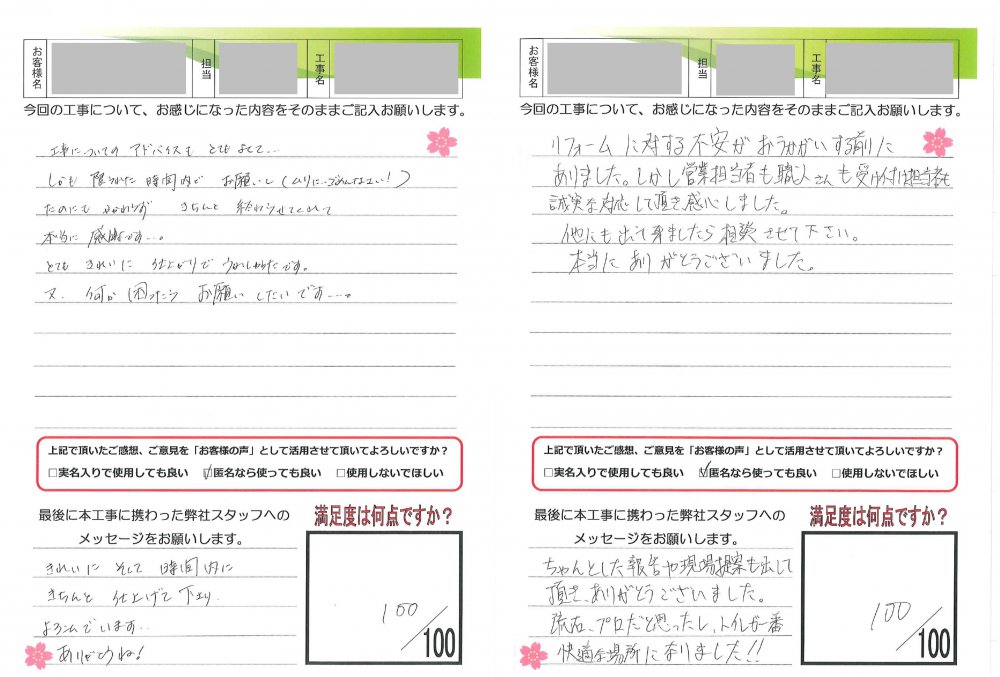 お客様名
担当
工事名
今回の工事について、お感じになった内容をそのままご記入お願いします。
工事についての アドバイスも とてもよくて…
しかも 限られた時間内で お願いし(ムリに…ごめんなさい!)
たのにもかかわらず きちんと 終わらせてくれて
本当に 感謝です…。
とても きれいに 仕上がりで うれしかったです。
又、何か困ったら お願いしたいです…。
上記で頂いたご感想、ご意見を「お客様の声」として活用させて頂いてよろしいですか?
□実名入りで使用しても良い ☑匿名なら使っても良い □使用しないでほしい
最後に本工事に携わった弊社スタッフへの
メッセージをお願いします。
きれいに そして 時間内に
きちんと 仕上げて下さり
よろこんでいます…
ありがとうね!
満足度は何点ですか?
100/100
お客様名
担当
工事名
今回の工事について、お感じになった内容をそのままご記入お願いします。
リフォームに対する不安がおうかがいする前に
ありました。しかし営業担当者も職人さんも受け付け担当者も
誠実な対応して頂き感心しました。
他にも出て来ましたら相談させて下さい。
本当にありがとうございました。
上記で頂いたご感想、ご意見を「お客様の声」として活用させて頂いてよろしいですか?
□実名入りで使用しても良い ☑匿名なら使っても良い □使用しないでほしい
最後に本工事に携わった弊社スタッフへの
メッセージをお願いします。
ちゃんとした報告や現場提案も出して
頂き、ありがとうございました。
流石、プロだと思ったし、トイレが一番
快適な場所になりました!!
満足度は何点ですか?
100/100